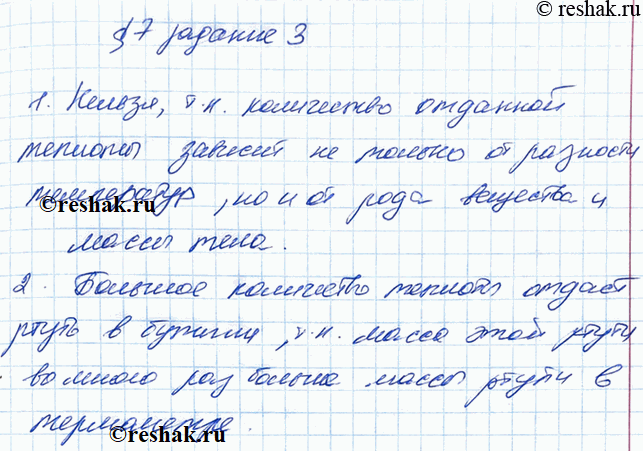 © reshak.ru
§7 задание 3
1. Нельзя, т.к. количество отданной
теплоты зависит не только от разности
температур, но и от рода вещества и
© reshak.ru
массы тела.
2. Большое количество теплоты отдаст
ртуть в бутыли, т.к. масса этой ртути
во много раз больше массы ртути в
термометре.
© reshak.ru